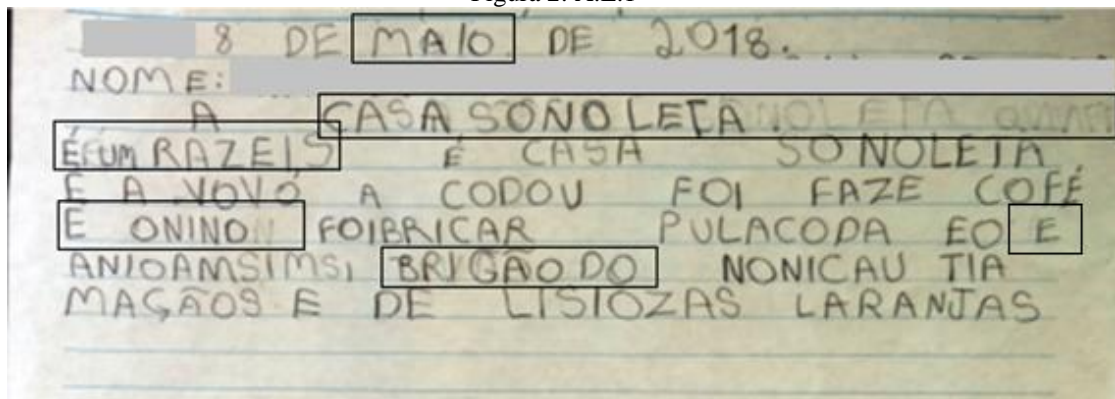 8 DE MAIO DE 2018.
NOME:
A CASA SONOLETA.
ÉFUM RAZEIS É CASA SONOLETA
E A VOVÓ A CODOU FOI FAZE COFÉ
E ONINO FOIBRICAR PULACODA EO E
ANIOAMSIMSI BRIGÃO DO NONICAU TIA
MAÇÃOS E DE LISIOZAS LARANJAS